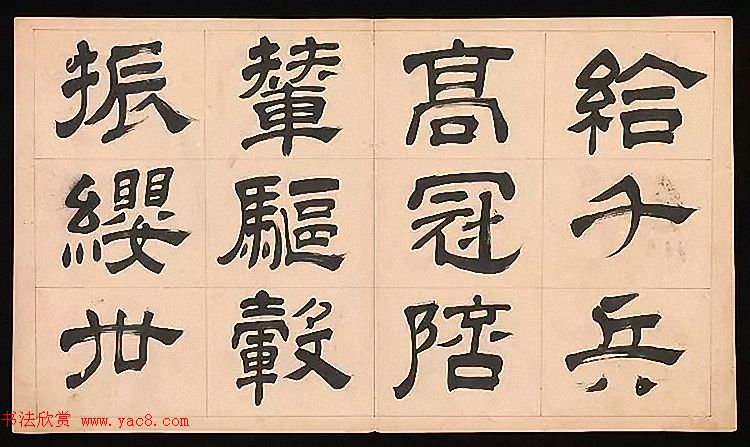 給千兵
高冠陪
輦驅轂
振纓世
书法欣赏 www.yac8.com